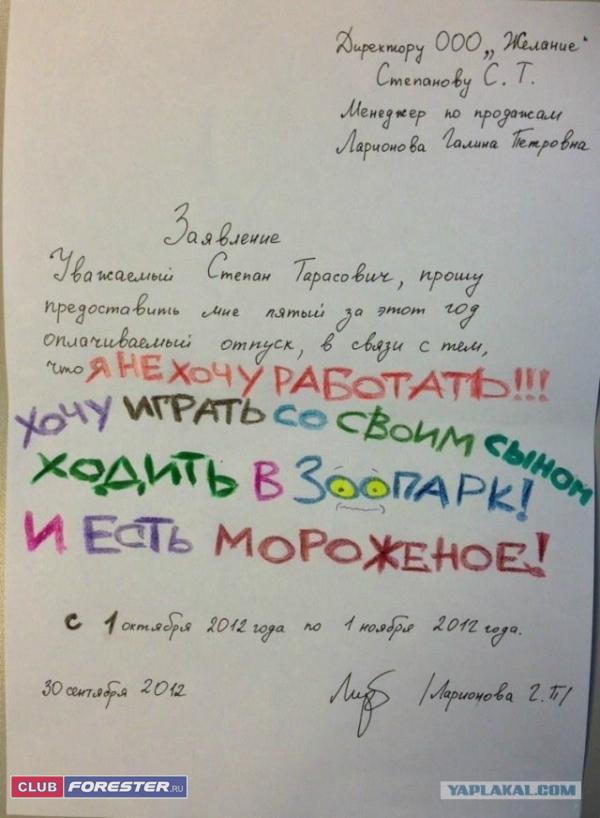 Директору ООО „Желание"
Степанову С. Т.
Менеджер по продажам
Ларионова Галина Петровна
Заявление
Уважаемый Степан Тарасович, прошу
предоставить мне пятый за этот год
оплачиваемый отпуск, в связи с тем,
что Я НЕ ХОЧУ РАБОТАТЬ!!!
ХОЧУ ИГРАТЬ СО СВОИМ СЫНОМ
ХОДИТЬ В ЗООПАРК!
И ЕСТЬ МОРОЖЕНОЕ!
с 1 октября 2012 года по 1 ноября 2012 года.
30 сентября 2012 /Ларионова Г. П/
CLUB FORESTER.RU
YAPLAKAL.COM